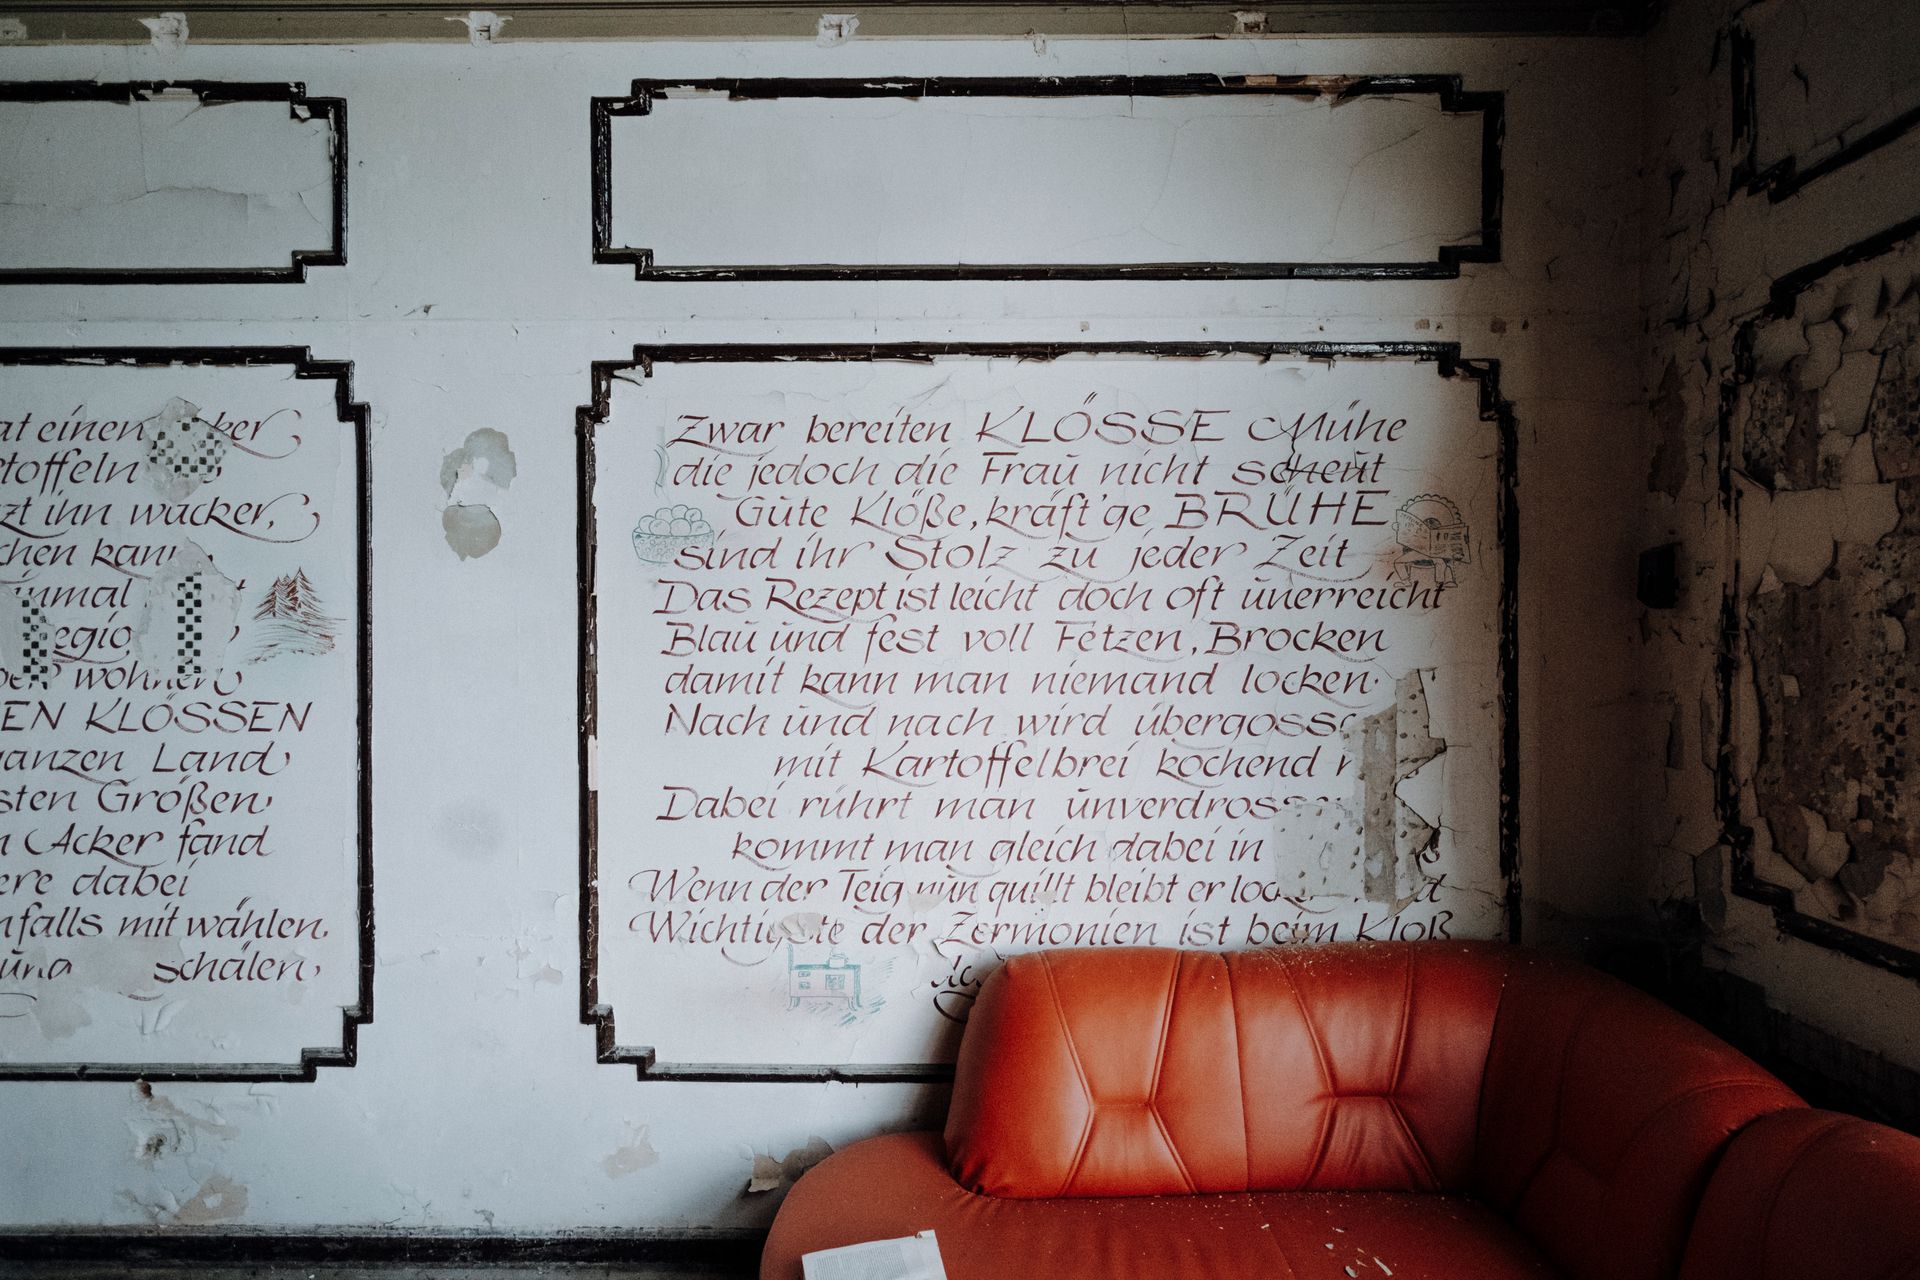 einen
wacker,
wohnen
KLÖSSEN
Land
Größen
Acker fand
dabei
mit wählen
schälen
Zwar bereiten KLÖSSE Mühe
die jedoch die Frau nicht scheut
Gute Klöße, kräft'ge BRÜHE
sind ihr Stolz zu jeder Zeit
Das Rezept ist leicht doch oft unerreicht
Blau und fest voll Fetzen, Brocken
damit kann man niemand locken.
Nach und nach wird
mit Kartoffelbrei kochend
Dabei rührt man
kommt man gleich dabei in
Wenn der Teig nun quillt bleibt er
Wichtigste der Zermonien ist beim Kloß